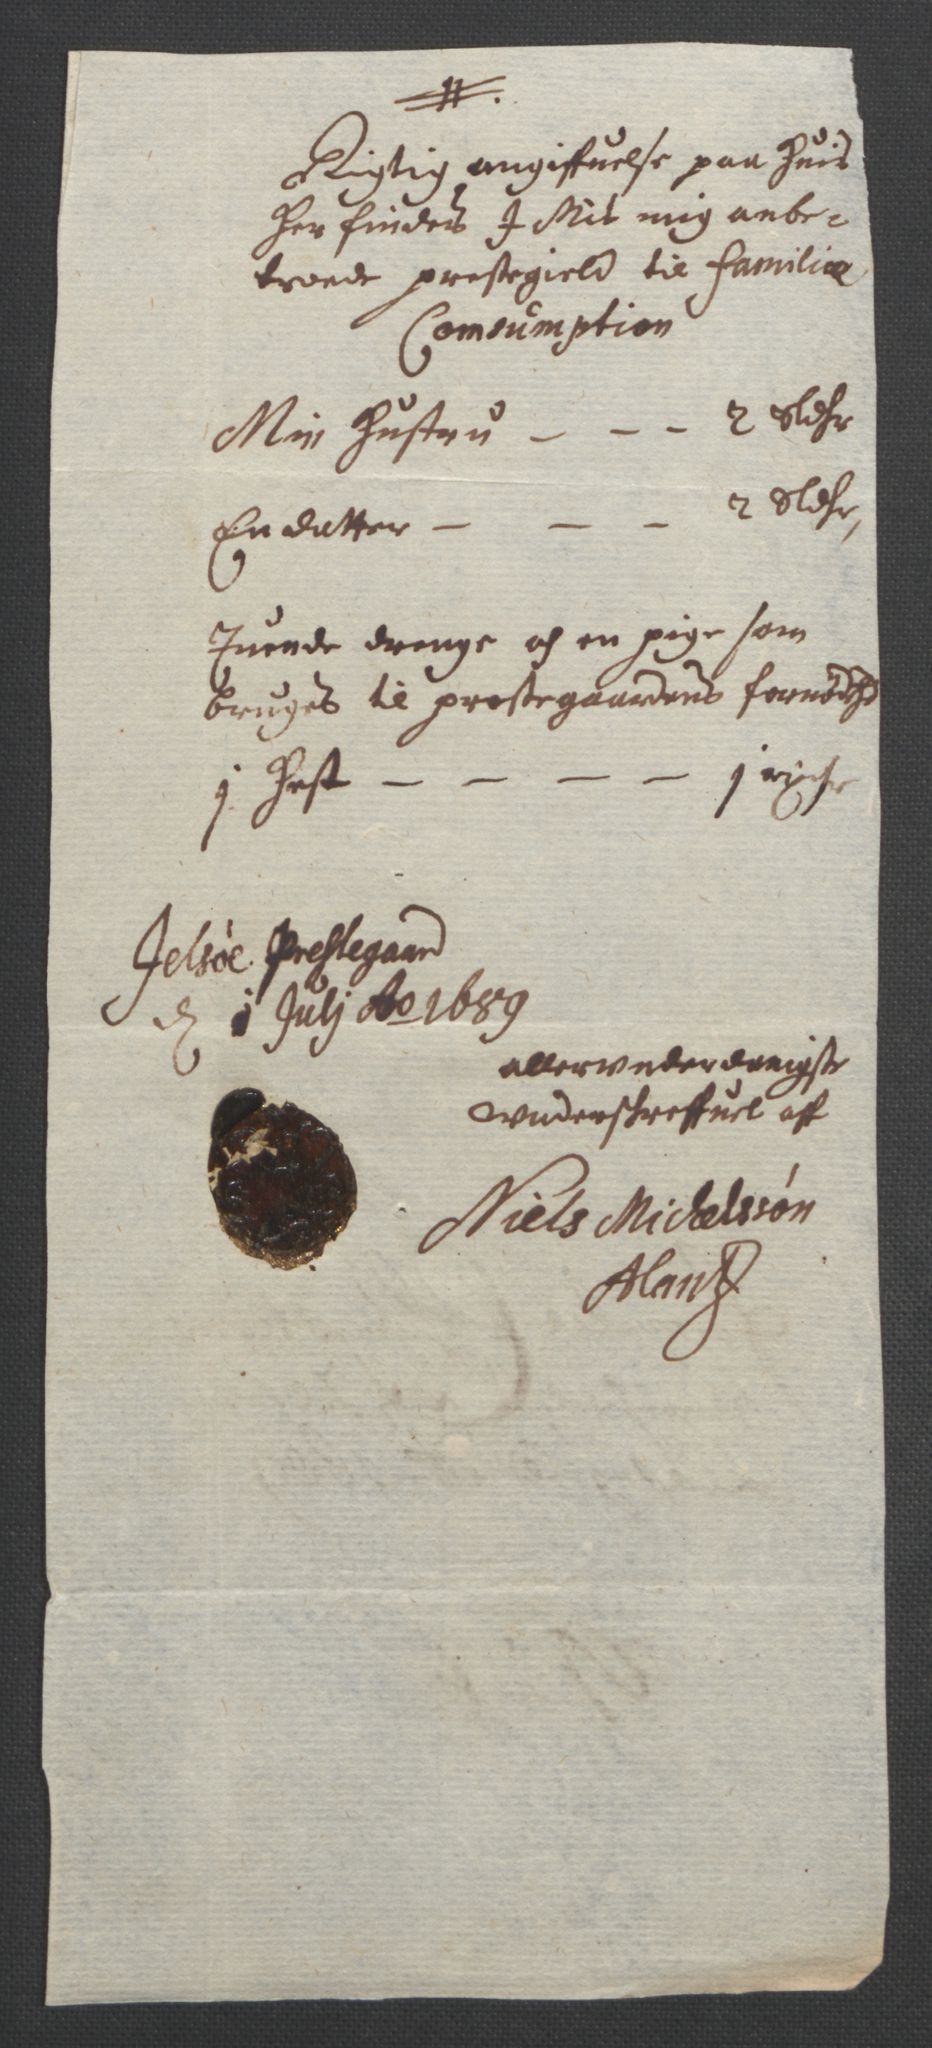 11.
Rigtig angiffuelse paa huis
her findes J Mit mig anbe-
troede prestegield til familiæ
Comsumption
Min Hustru - - - 2 Sldhr
En datter - - - 2 Sldhr,
Tuende drenge oh en pige som
bruges til prestegaardens fornødhd
j Hest - - - - j rixdhr
Jelsøe Prestegaard
d j Julj Ao 1689
allervnderdanigste
vnderskreffuet aff
Niels Michelssøn